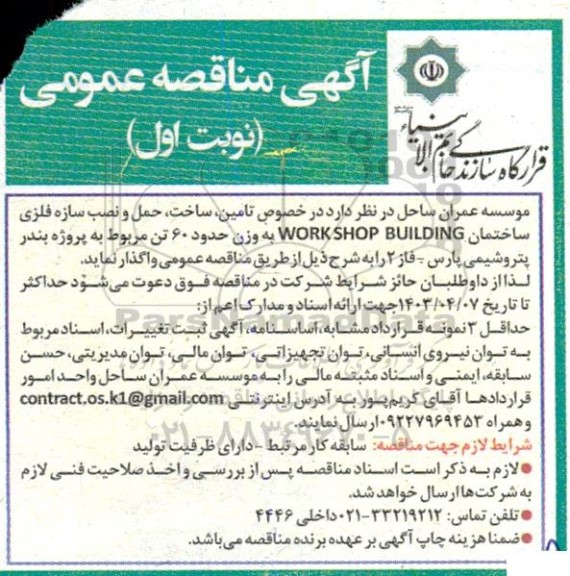 آگهی مناقصه عمومی
(نوبت اول)
قرارگاه سازندگی خاتم الانبیاء
موسسه عمران ساحل در نظر دارد در خصوص تامین، ساخت، حمل و نصب سازه فلزی
ساختمان WORKSHOP BUILDING به وزن حدود ۶۰ تن مربوط به پروژه بندر
پتروشیمی پارس - فاز ۲ را به شرح ذیل از طریق مناقصه عمومی واگذار نماید.
لذا از داوطلبان حائز شرایط شرکت در مناقصه فوق دعوت می‌شود حداکثر
تا تاریخ ۱۴۰۳/۰۴/۰۷ جهت ارائه اسناد و مدارک اعم از:
حداقل ۳ نمونه قرارداد مشابه، اساسنامه، آگهی ثبت تغییرات، اسناد مربوط
به توان نیروی انسانی، توان تجهیزاتی، توان مالی، توان مدیریتی، حسن
سابقه، ایمنی و اسناد مثبته مالی را به موسسه عمران ساحل واحد امور
قراردادها آقای کریم‌پور به آدرس اینترنتی contract.os.k1@gmail.com
و همراه ۰۹۲۲۷۹۶۹۴۵۳ ارسال نمایند.
شرایط لازم جهت مناقصه: سابقه کار مرتبط - دارای ظرفیت تولید
● لازم به ذکر است اسناد مناقصه پس از بررسی و اخذ صلاحیت فنی لازم
به شرکت‌ها ارسال خواهد شد.
● تلفن تماس: ۳۳۲۱۹۲۱۲-۰۲۱ داخلی ۴۴۴۶
● ضمنا هزینه چاپ آگهی بر عهده برنده مناقصه می‌باشد.
ParsNamadData
۰۲۱-۸۸۳۴۹۶۷۰-۵